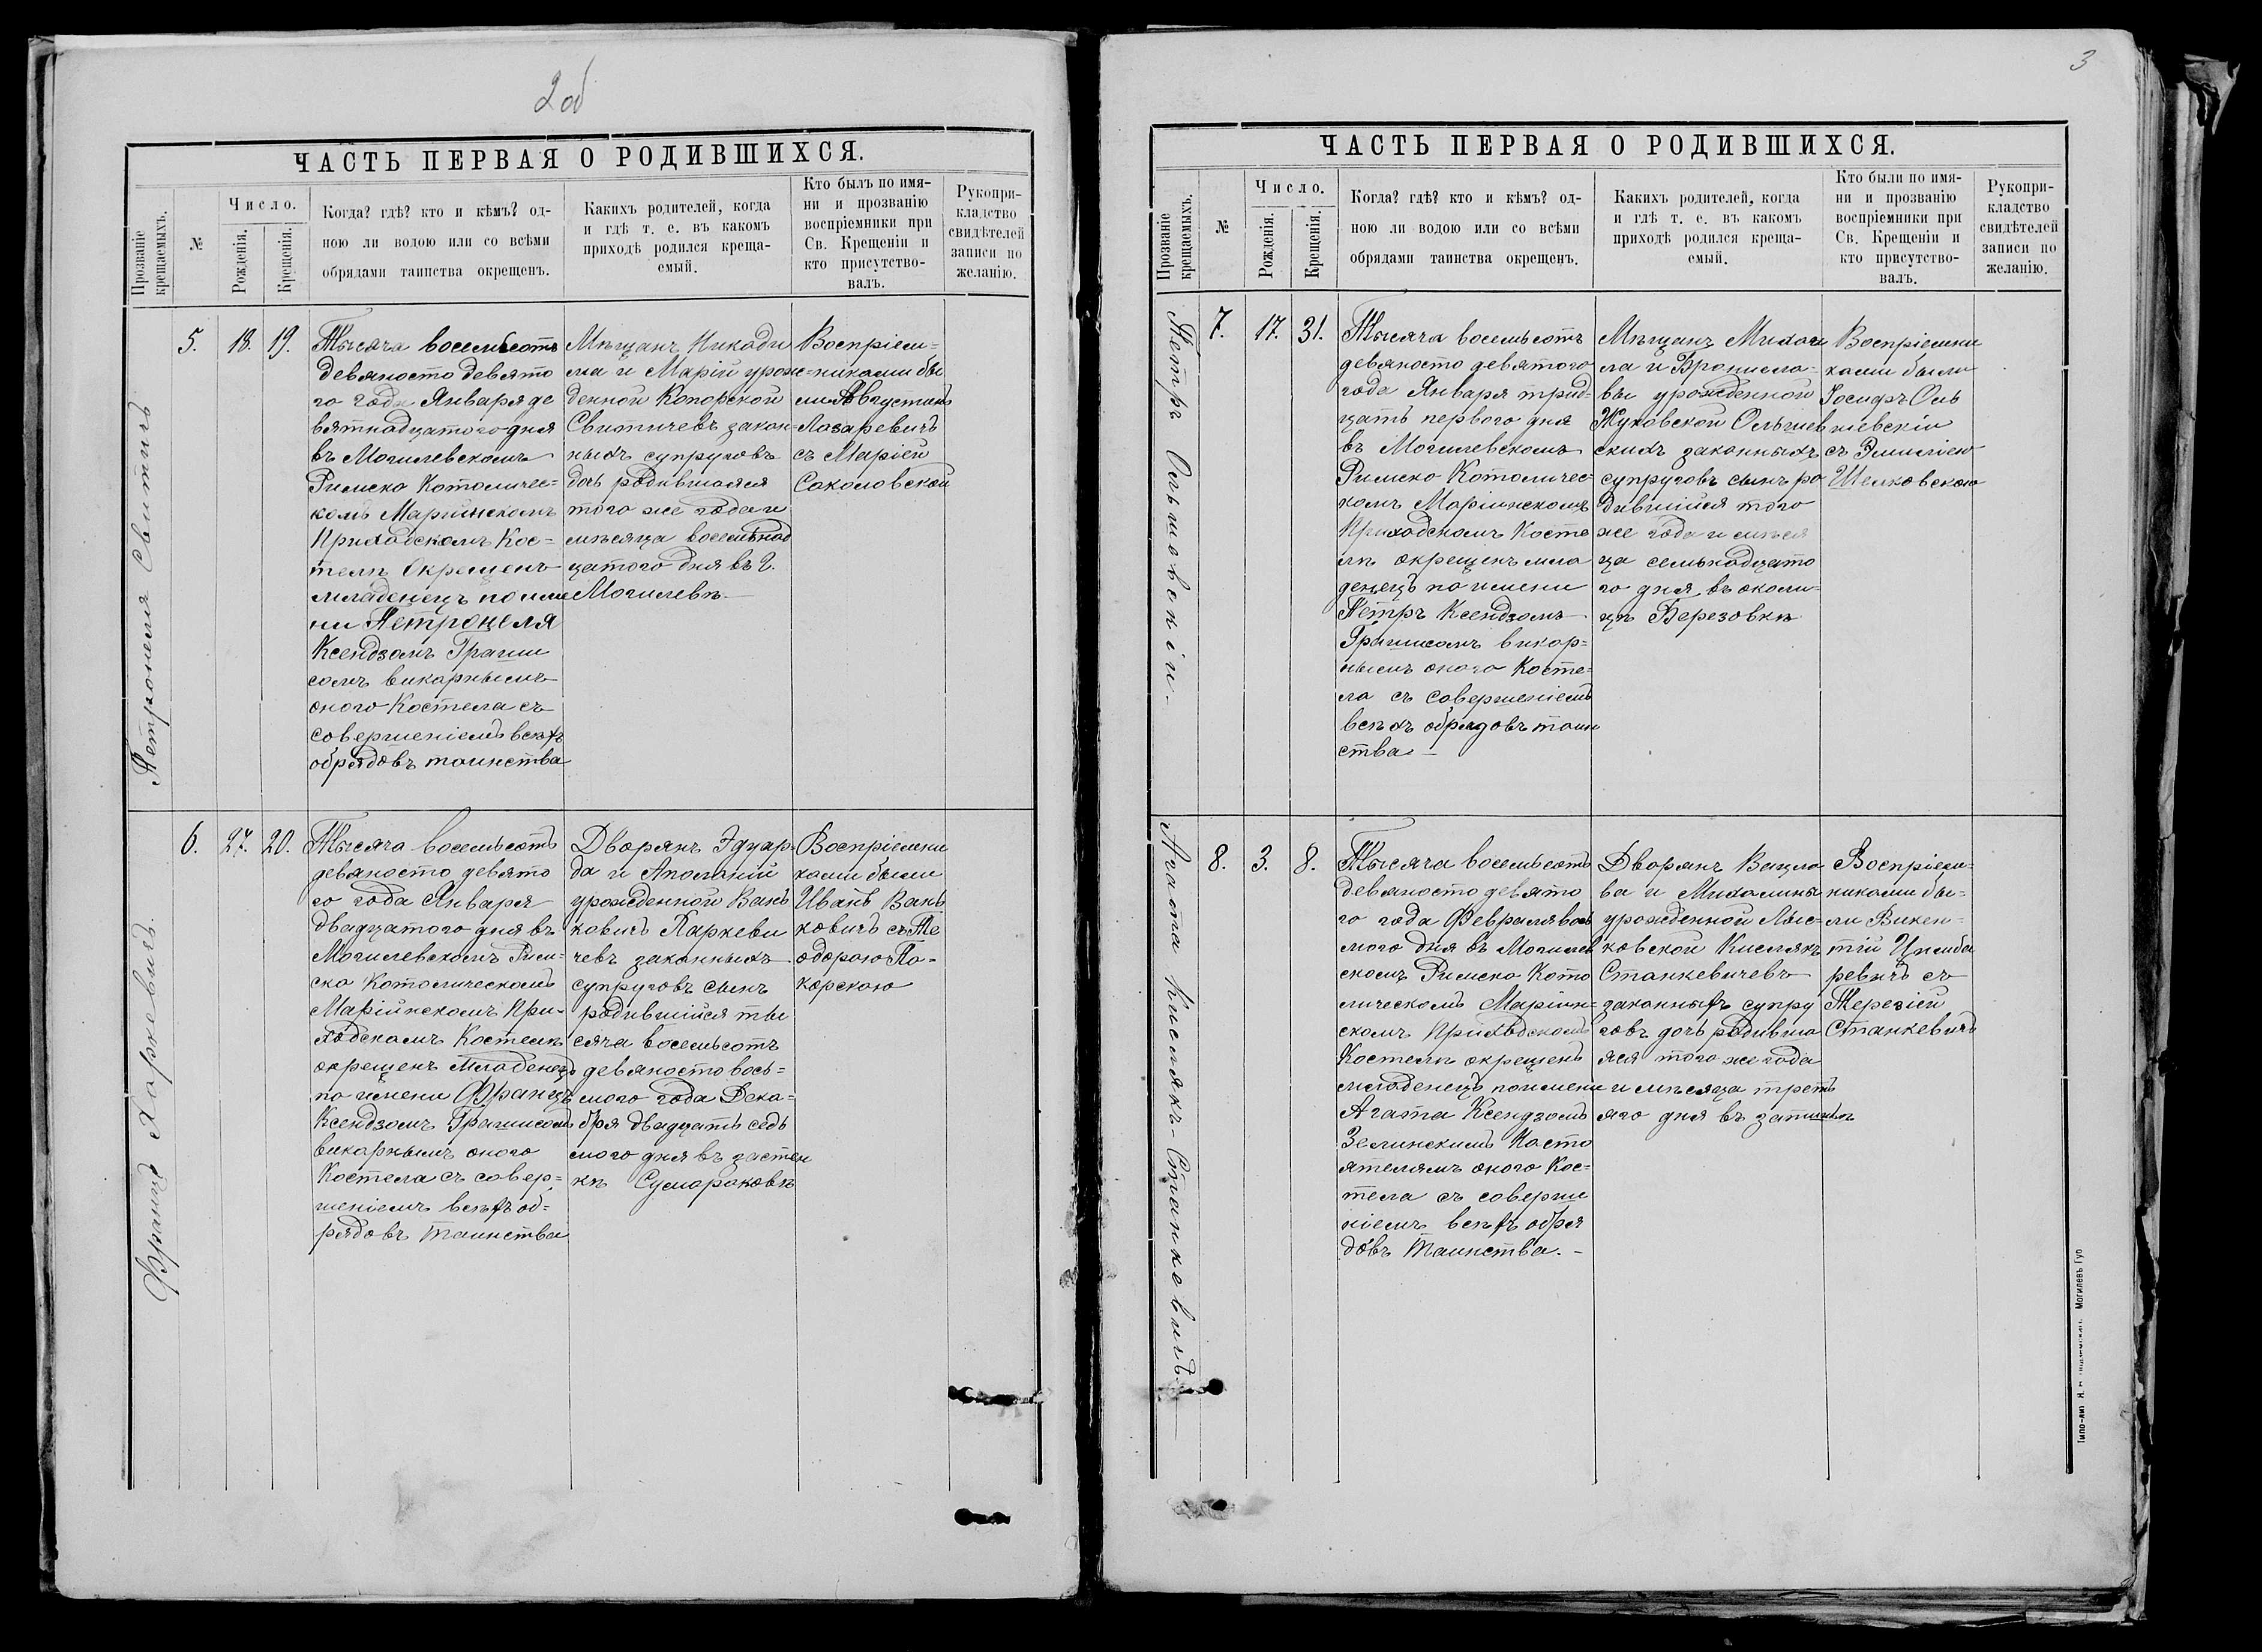 2об
ЧАСТЬ ПЕРВАЯ О РОДИВШИХСЯ.
Прозваніе крещаемыхъ.
№
Число.
Рожденія.
Крещенія.
Когда? гдѣ? кто и кѣмъ? од-
ною ли водою или со всѣми
обрядами таинства окрещенъ.
Какихъ родителей, когда
и гдѣ т. е. въ какомъ
приходѣ родился креща-
емый.
Кто былъ по имя-
ни и прозванію
воспріемники при
Св. Крещеніи и
кто присутство-
валъ.
Рукопри-
кладство
свидѣтелей
записи по
желанію.
Петронеля Свитичъ
5.
18.
19.
Тысяча восемьсотъ
девяносто девято
го года Января де
вятнадцатого дня
въ Могилевскомъ
Римско Католичес=
комъ Маріинскомъ
Приходскомъ Кос=
телѣ окрещенъ
младенецъ по име
ни Петронеля
Ксендзомъ Грагии
сомъ викарнымъ
оного Костела съ
совершеніемъ всѣхъ
обрядовъ таинства
Мѣщанъ Никоди
ма и Маріи урож=
денной Копорской
Свитичевъ закон=
ныхъ супруговъ
дочь родившаяся
того же года и
мѣсяца восемьнад
цатого дня въ г.
Могилевѣ.
Воспріем=
никами бы
ли Августинъ
Лазаревичъ
съ Маріей
Соколовской
Францъ Харкевичъ.
6.
27.
20.
Тысяча восемьсотъ
девяносто девято
го года Января
двадцатого дня въ
Могилевскомъ Рим=
ско Католическомъ
Маріинскомъ При=
ходскомъ Костелѣ
окрещенъ младенецъ
по имени Францъ
Ксендзомъ Грагиисомъ
викарнымъ оного
Костела съ совер=
шеніемъ всѣхъ об=
рядовъ таинства
Дворянъ Эдуар=
да и Аполоніи
урожденной Вань
ковичъ Харкеви
чевъ законныхъ
супруговъ сынъ
родившійся ты
сяча восемьсотъ
девяносто вось=
мого года Дека=
бря двадцать седь
мого дня въ застен
кѣ Сумароковѣ
Воспріемни
ками были
Иванъ Вань
ковичъ съ Те
одорою По=
корскою
3
ЧАСТЬ ПЕРВАЯ О РОДИВШИХСЯ.
Прозваніе крещаемыхъ.
№
Число.
Рожденія.
Крещенія.
Когда? гдѣ? кто и кѣмъ? од-
ною ли водою или со всѣми
обрядами таинства окрещенъ.
Какихъ родителей, когда
и гдѣ т. е. въ какомъ
приходѣ родился креща-
емый.
Кто были по имя-
ни и прозванію
воспріемники при
Св. Крещеніи и
кто присутство-
валъ.
Рукопри-
кладство
свидѣтелей
записи по
желанію.
Петръ Ольшевскій.
7.
17.
31.
Тысяча восемьсотъ
девяносто девятого
года Января трид=
цать первого дня
въ Могилевскомъ
Римско Католичес=
комъ Маріинскомъ
Приходскомъ Косте
лѣ окрещенъ мла
денецъ по имени
Петръ Ксендзомъ
Грагиисомъ викар=
нымъ оного Косте=
ла съ совершеніемъ
всѣхъ обрядовъ таин
ства —
Мѣщанъ Михаи
ла и Бронисла=
вы урожденной
Жуковской Ольшев
скихъ законныхъ
супруговъ сынъ ро
дившійся того
же года и мѣся
ца семьнадцато
го дня въ околи=
цѣ Березовкѣ
Воспріемни
ками были
Іосифъ Оль
шевскій
съ Эмиліею
Шелковскою
Агата Кислякъ-Станкевичъ.
8.
3.
8.
Тысяча восемьсотъ
девяносто девято
го года Февраля вось
мого дня въ Могилев
скомъ Римско Като
лическомъ Маріин=
скомъ Приходскомъ
Костелѣ окрещенъ
младенецъ по имени
Агата Ксендзомъ
Зелинскимъ Насто
ятелямъ оного Кос=
тела съ соверше
ніемъ всѣхъ обря
довъ Таинства. —
Дворянъ Вацла
ва и Михалины
урожденной Лы=
ковской Кислякъ
Станкевичевъ
законныхъ супру
говъ дочь родивша
яся того же года
и мѣсяца треть
яго дня въ
Воспріем=
никами бы=
ли Викен=
тій Цимба
ревичъ съ
Терезіей
Станкевичъ
Могилевъ Губ